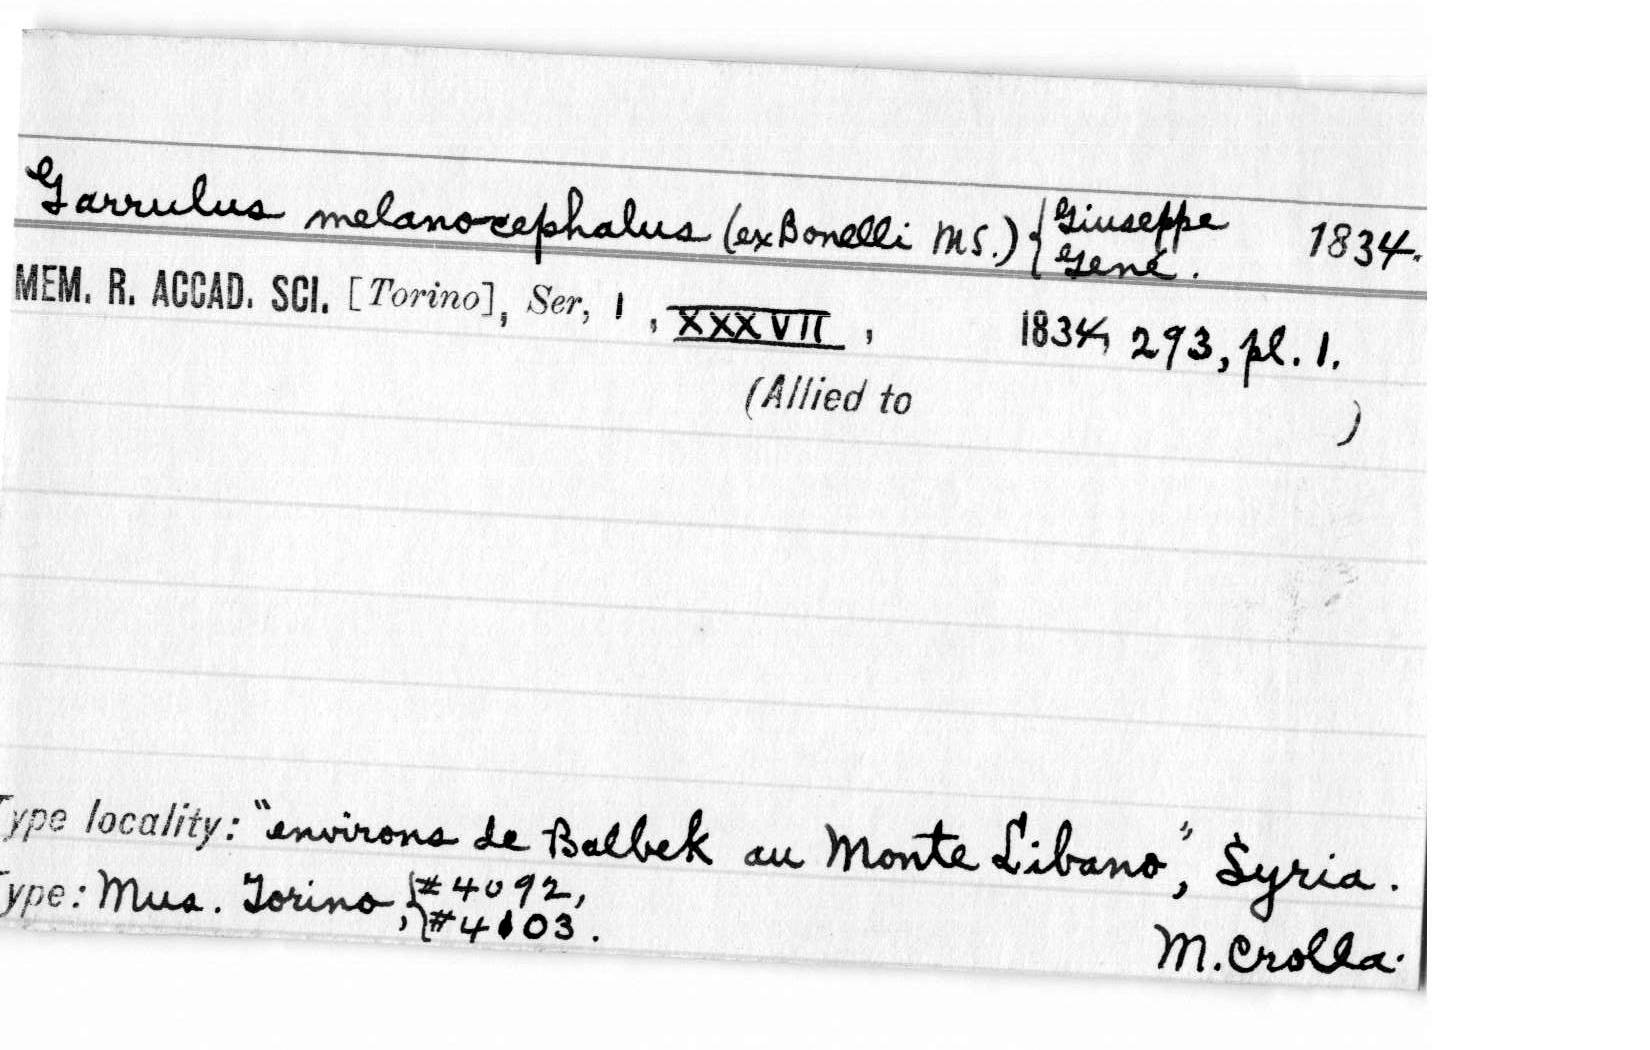 Garrulus melanocephalus (ex Bonelli MS.) { Giuseppe Gené. 1834.
MEM. R. ACCAD. SCI. [Torino], Ser, 1, XXXVII, 1834, 293, pl. 1.
(Allied to )
Type locality: "environs de Balbek au Monte Libano", Syria.
Type: Mus. Torino, { #4092, #4103.
M. Crolla.